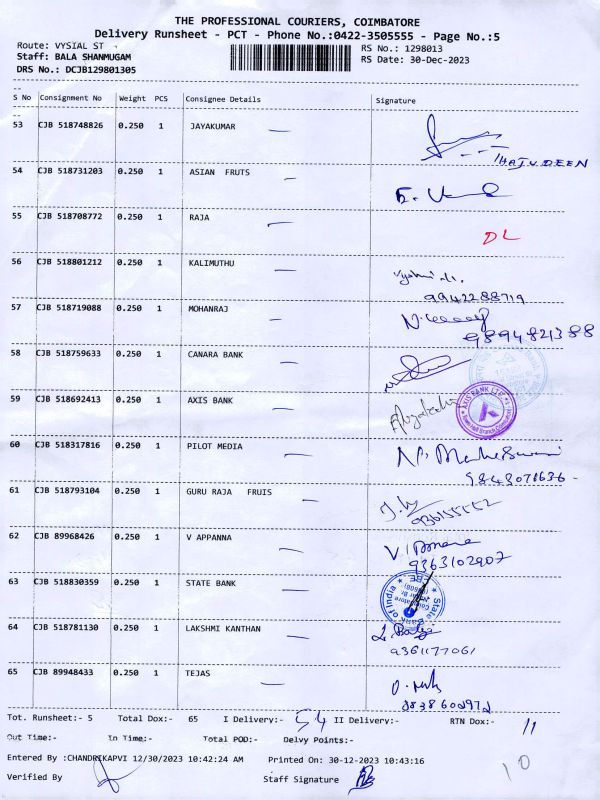 THE PROFESSIONAL COURIERS, COIMBATORE
Delivery Runsheet - PCT - Phone No.:0422-3505555 - Page No.:5
Route: VYSIAL ST
RS No.: 1298013
Staff: BALA SHANMUGAM
RS Date: 30-Dec-2023
DRS No.: DCJB129801305
S No Consignment No Weight PCS Consignee Details Signature
53 CJB 518748826 0.250 1 JAYAKUMAR
THAJUDEEN
54 CJB 518731203 0.250 1 ASIAN FRUTS
55 CJB 518708772 0.250 1 RAJA
DL
56 CJB 518801212 0.250 1 KALIMUTHU
9942288719
57 CJB 518719088 0.250 1 MOHANRAJ
9894821388
58 CJB 518759633 0.250 1 CANARA BANK
59 CJB 518692413 0.250 1 AXIS BANK
AXIS BANK LTD
60 CJB 518317816 0.250 1 PILOT MEDIA
61 CJB 518793104 0.250 1 GURU RAJA FRUIS
62 CJB 89968426 0.250 1 V APPANNA
9363102907
63 CJB 518830359 0.250 1 STATE BANK
State Bank of India
64 CJB 518781130 0.250 1 LAKSHMI KANTHAN
9361177061
65 CJB 89948433 0.250 1 TEJAS
Tot. Runsheet:- 5 Total Dox:- 65 I Delivery:- 54 II Delivery:- RTN Dox:- 11
Out Time:- In Time:- Total POD:- Delvy Points:-
Entered By :CHANDRIKAPVI 12/30/2023 10:42:24 AM Printed On: 30-12-2023 10:43:16
10
Verified By Staff Signature